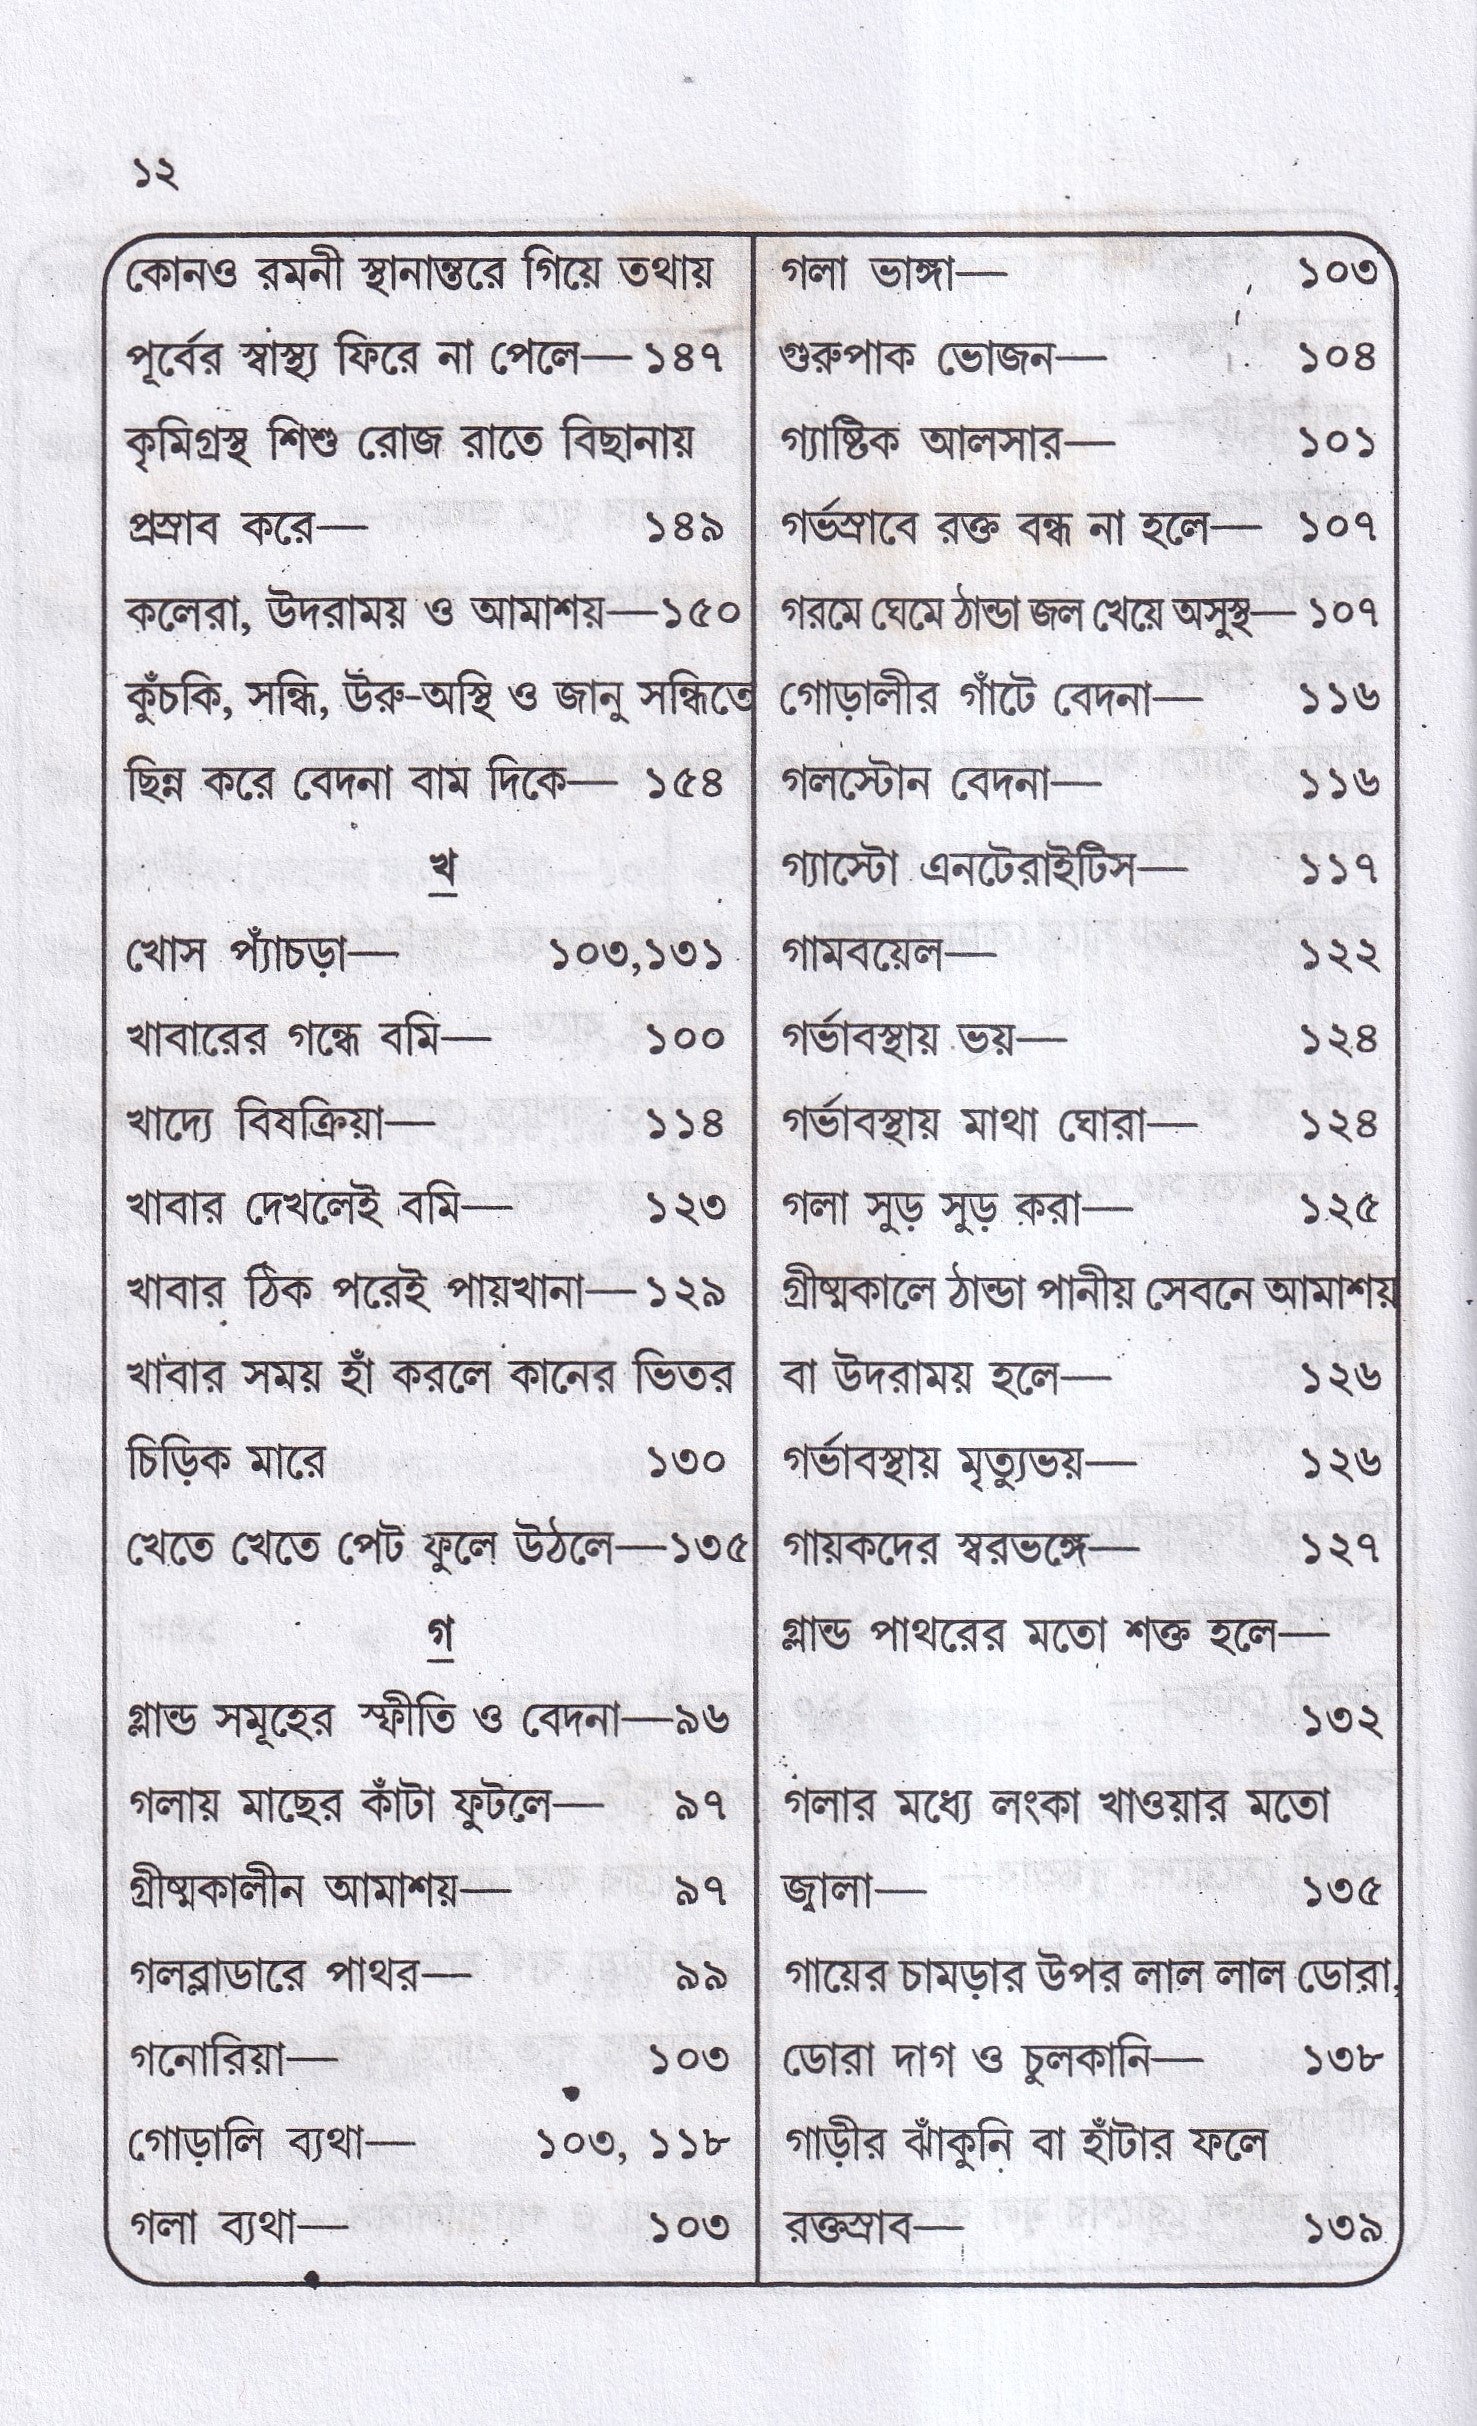 ১২
কোনও রমনী স্থানান্তরে গিয়ে তথায়
পূর্বের স্বাস্থ্য ফিরে না পেলে— ১৪৭
কৃমিগ্রস্থ শিশু রোজ রাতে বিছানায়
প্রস্রাব করে— ১৪৯
কলেরা, উদরাময় ও আমাশয়—১৫০
কুঁচকি, সন্ধি, উরু-অস্থি ও জানু সন্ধিতে
ছিন্ন করে বেদনা বাম দিকে— ১৫৪
খ
খোস প্যাঁচড়া— ১০৩,১৩১
খাবারের গন্ধে বমি— ১০০
খাদ্যে বিষক্রিয়া— ১১৪
খাবার দেখলেই বমি— ১২৩
খাবার ঠিক পরেই পায়খানা— ১২৯
খাবার সময় হাঁ করলে কানের ভিতর
চিড়িক মারে ১৩০
খেতে খেতে পেট ফুলে উঠলে—১৩৫
গ
গ্লান্ড সমূহের স্ফীতি ও বেদনা—৯৬
গলায় মাছের কাঁটা ফুটলে— ৯৭
গ্রীষ্মকালীন আমাশয়— ৯৭
গলব্লাডারে পাথর— ৯৯
গনোরিয়া— ১০৩
গোড়ালি ব্যথা— ১০৩, ১১৮
গলা ব্যথা— ১০৩
গলা ভাঙ্গা— ১০৩
গুরুপাক ভোজন— ১০৪
গ্যাষ্টিক আলসার— ১০১
গর্ভস্রাবে রক্ত বন্ধ না হলে— ১০৭
গরমে ঘেমে ঠান্ডা জল খেয়ে অসুস্থ— ১০৭
গোড়ালীর গাঁটে বেদনা— ১১৬
গলস্টোন বেদনা— ১১৬
গ্যাস্টো এনটেরাইটিস— ১১৭
গামবয়েল— ১২২
গর্ভাবস্থায় ভয়— ১২৪
গর্ভাবস্থায় মাথা ঘোরা— ১২৪
গলা সুড় সুড় করা— ১২৫
গ্রীষ্মকালে ঠান্ডা পানীয় সেবনে আমাশয়
বা উদরাময় হলে— ১২৬
গর্ভাবস্থায় মৃত্যুভয়— ১২৬
গায়কদের স্বরভঙ্গে— ১২৭
গ্লান্ড পাথরের মতো শক্ত হলে—
১৩২
গলার মধ্যে লংকা খাওয়ার মতো
জ্বালা— ১৩৫
গায়ের চামড়ার উপর লাল লাল ডোরা,
ডোরা দাগ ও চুলকানি— ১৩৮
গাড়ীর ঝাঁকুনি বা হাঁটার ফলে
রক্তস্রাব— ১৩৯